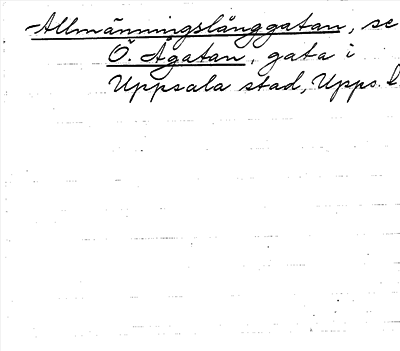 Allmänningslånggatan, se
Ö. Ågatan, gata i
Uppsala stad, Upps. l.